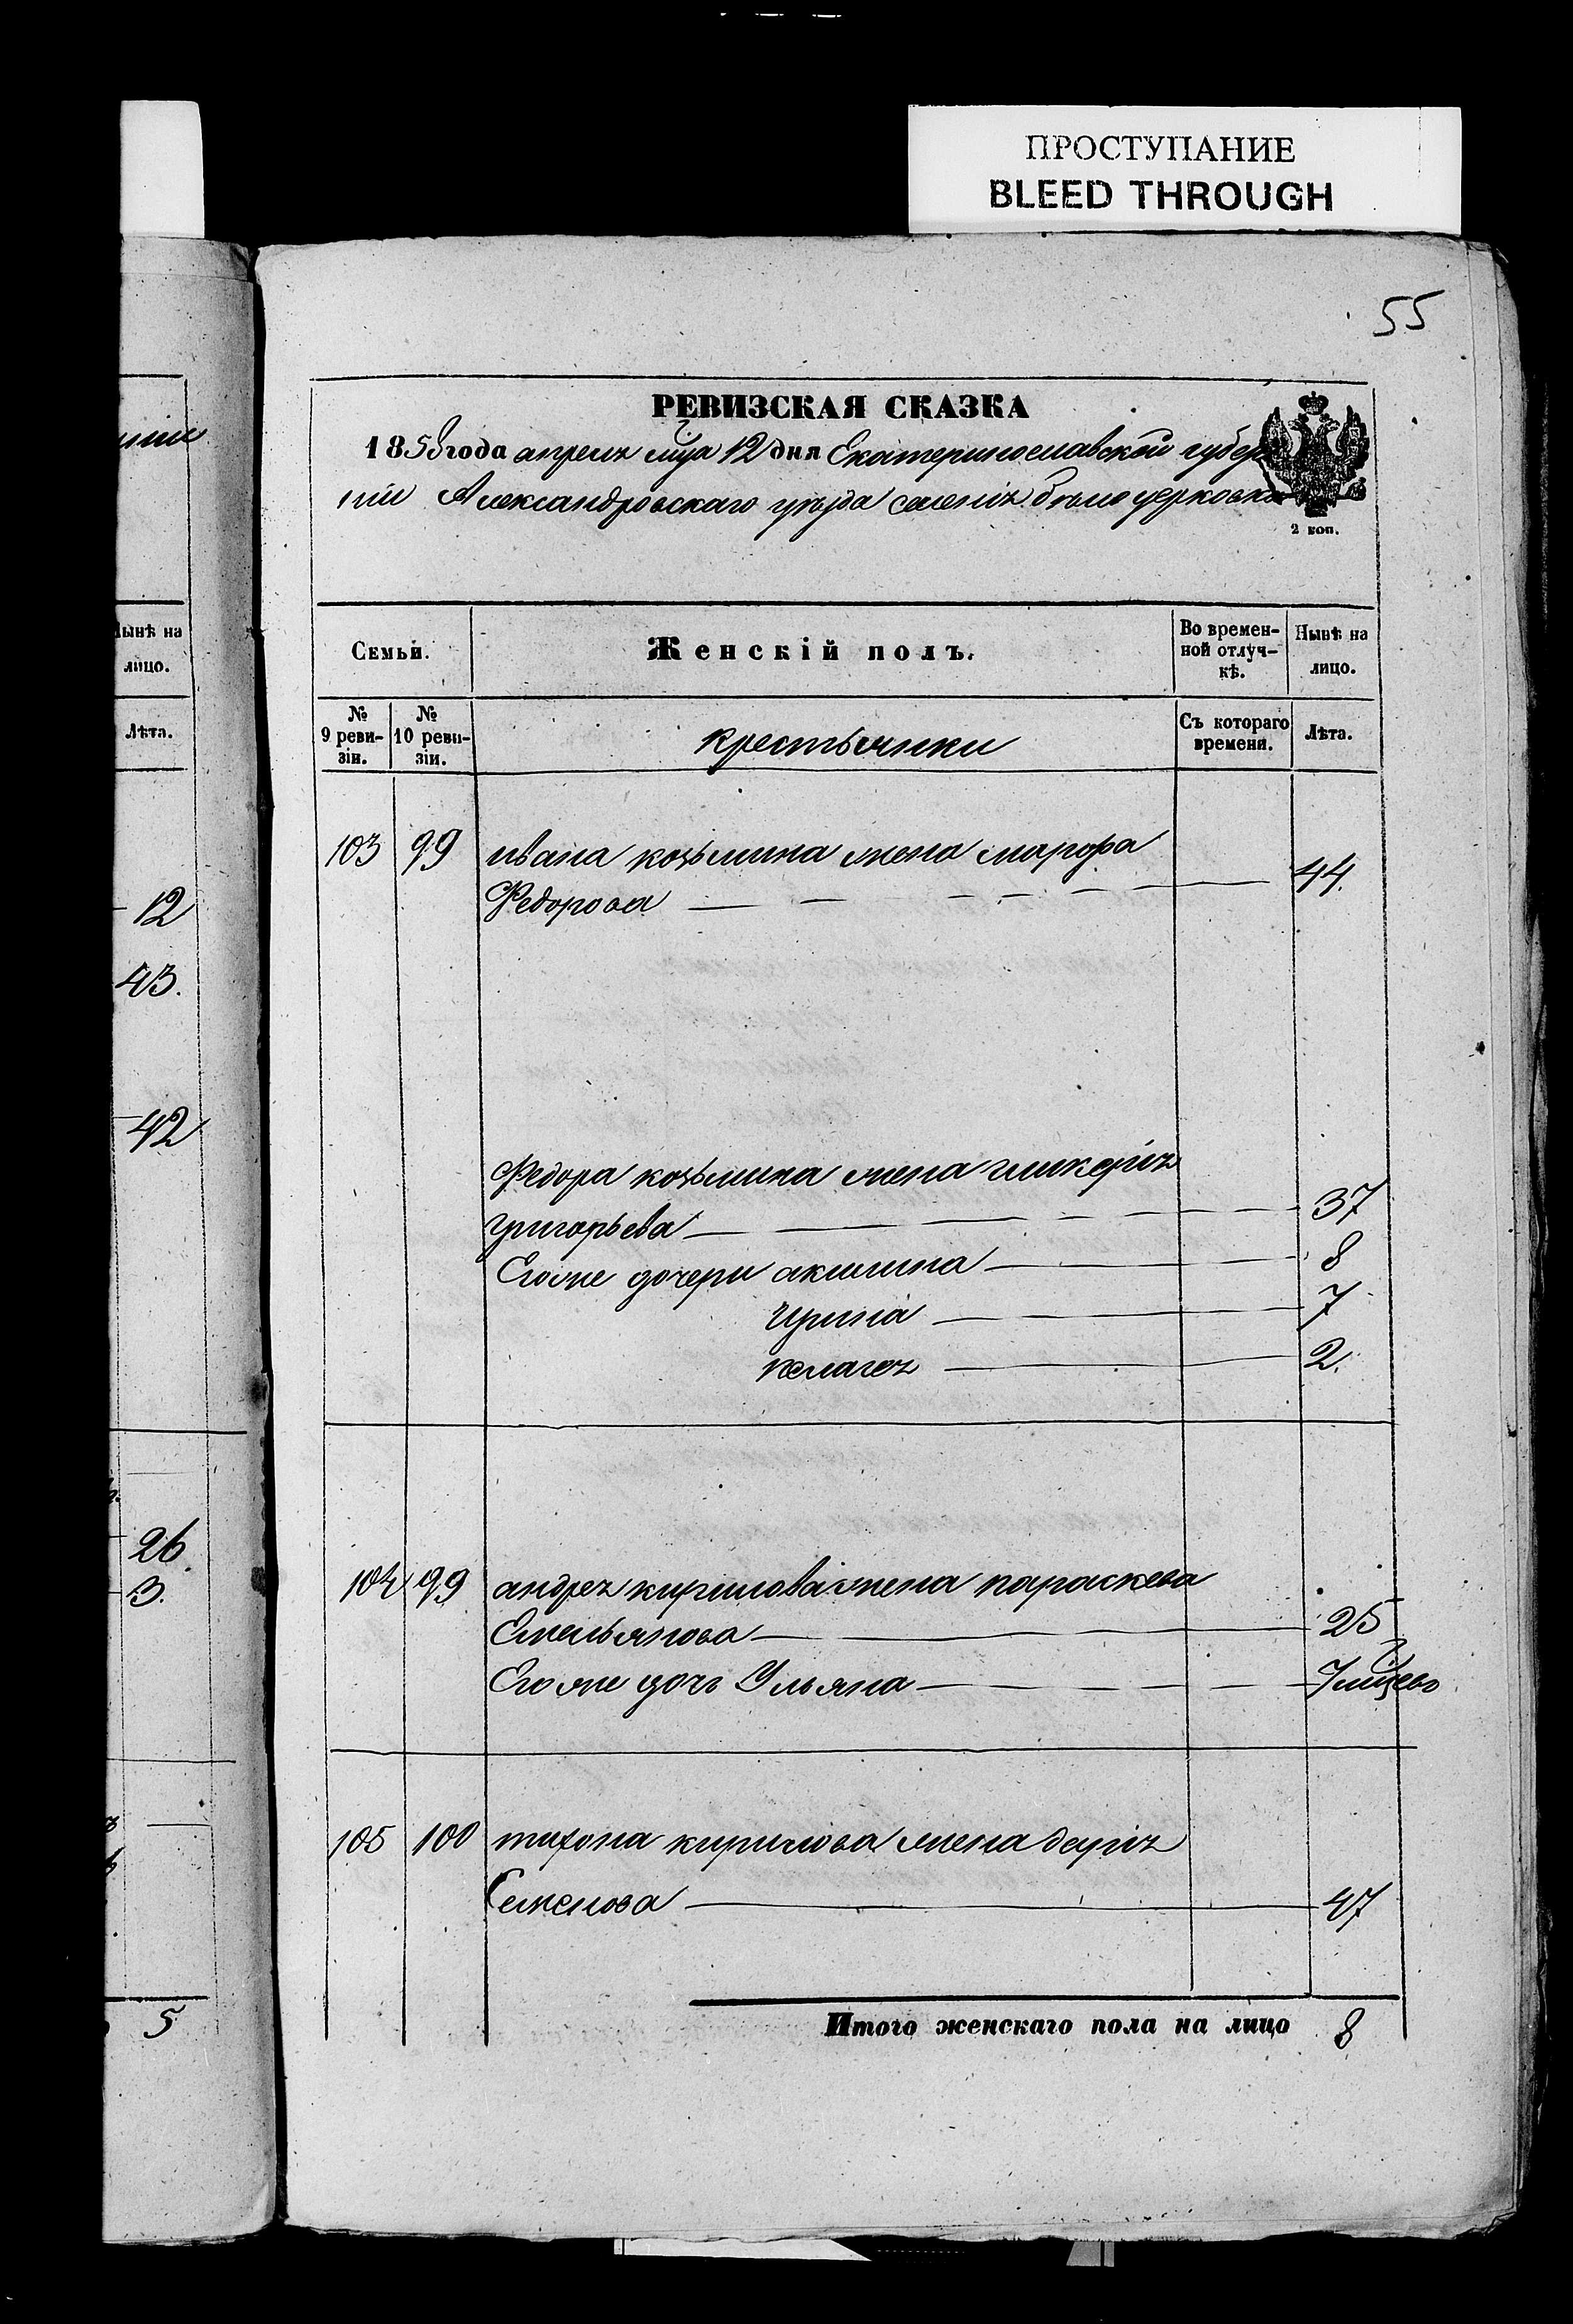 ПРОСТУПАНИЕ
BLEED THROUGH
55
РЕВИЗСКАЯ СКАЗКА
1858 года апреля мца 12 дня Екатеринославской губер
нии Александровскаго уѣзда селенія бѣлоцерковки
2 коп.
Семьи. Женскій полъ. Во времен- ной отлуч- кѣ. Нынѣ на лицо.
№ 9 реви- зіи. № 10 реви- зіи. крестьянки Съ котораго времени. Лѣта.
103 99 ивана козьмина жена марфа
Федорова 44.
Федора козьмина жена гликерія
григорьева 37
Его же дочери акилина 8
Ирина 7
пелагея 2.
104 99 андрея кирилова жена параскева
Емельянова 25
Его же дочь Ульяна 7 мцево
105 100 тихона кирилова жена дарія
Семенова 47
Итого женскаго пола на лицо 8
Нынѣ на
лицо.
Лѣта.
12
43.
42
26.
3.
5